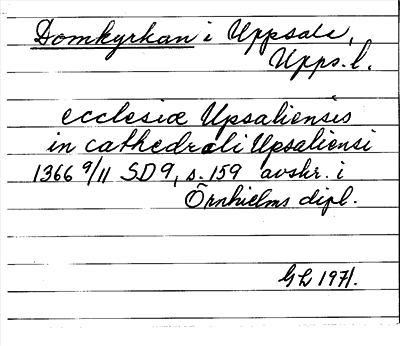 Domkyrkan i Uppsala,
Upps. l.
ecclesiæ Upsaliensis
in cathedrali Upsaliensi
1366 9/11 SD 9, s. 159 avskr. i
Örnhielms dipl.
GL 1971.